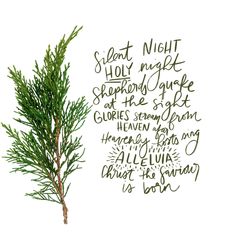 Silent NIGHT
HOLY night
Shepherds quake
at the sight
GLORIES stream from
HEAVEN afar
Heavenly hosts sing
ALLELUIA
Christ the saviour
is born